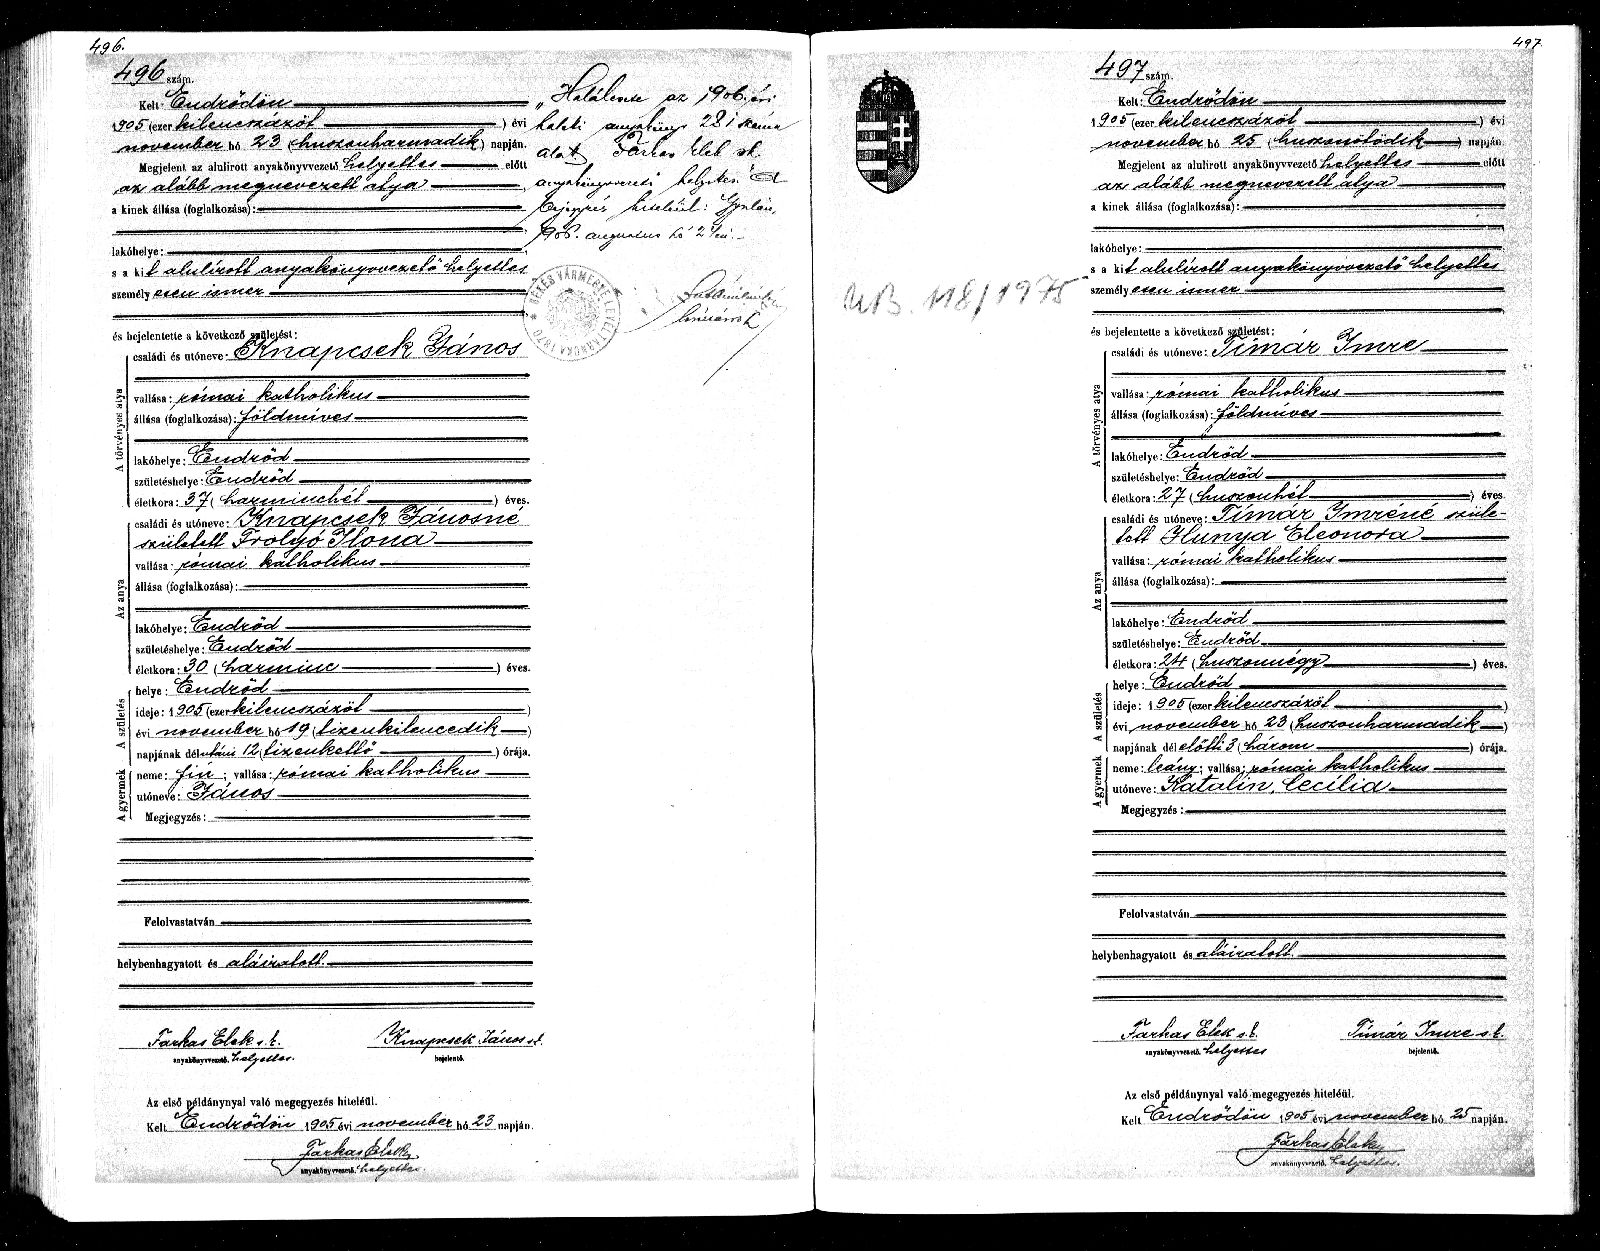 496.
496 szám.
Kelt Endrődön
1905 (ezer kilencszázöt) évi
november hó 23 (huszonharmadik) napján.
Megjelent az alulirott anyakönyvvezető helyettes előtt
az alább megnevezett atya
a kinek állása (foglalkozása):
lakóhelye:
s a kit alulírott anyakönyvvezető helyettes
személyesen ismer
és bejelentette a következő születést:
A törvényes atya
családi és utóneve: Knapcsek János
vallása: római katholikus
állása (foglalkozása): földmíves
lakóhelye: Endrőd
születéshelye: Endrőd
életkora: 37 (harminchét) éves.
Az anya
családi és utóneve: Knapcsek Jánosné
született Frolyó Ilona
vallása: római katholikus
állása (foglalkozása):
lakóhelye: Endrőd
születéshelye: Endrőd
életkora: 30 (harminc) éves.
A születés
helye: Endrőd
ideje: 1905 (ezer kilencszázöt)
évi november hó 19 (tizenkilencedik)
napjának délutáni 12 (tizenkettő) órája.
A gyermek
neme: fiú; vallása: római katholikus
utóneve: János
Megjegyzés:
Felolvastatván
helybenhagyatott és aláiratott.
Farkas Elek s.k. Knapcsek János s.k.
anyakönyvvezető. helyettes. bejelentő.
Az első példánynyal való megegyezés hiteléül.
Kelt Endrődön 1905 évi november hó 23 napján.
Farkas Elek
anyakönyvvezető. helyettes.
„Halálesete az 1906. évi
haloti anyakönyv 281 száma
alatt Farkas Elek sk.
anyakönyvvezető helyettes."
bejegyzés hiteléül: Gyulán,
1906. augusztus hó 2
BÉKÉS VÁRMEGYE LEVÉLTÁRNOKA 1870
levéltárnok
497.
497 szám.
Kelt: Endrődön
1905 (ezer kilencszázöt) évi
november hó 25 (huszonötödik) napján.
Megjelent az alulirott anyakönyvvezető helyettes előtt
az alább megnevezett atya
a kinek állása (foglalkozása):
lakóhelye:
s a kit alulírott anyakönyvvezető helyettes
személyesen ismer
és bejelentette a következő születést:
A törvényes atya
családi és utóneve: Tímár Imre
vallása: római katholikus
állása (foglalkozása): földmíves
lakóhelye: Endrőd
születéshelye: Endrőd
életkora: 27 (huszonhét) éves.
Az anya
családi és utóneve: Tímár Imréné szüle-
tett Hunya Eleonora
vallása: római katholikus
állása (foglalkozása):
lakóhelye: Endrőd
születéshelye: Endrőd
életkora: 24 (huszonnégy) éves.
A születés
helye: Endrőd
ideje: 1905 (ezer kilencszázöt)
évi november hó 23 (huszonharmadik)
napjának délelőtti 3 (három) órája.
A gyermek
neme: leány; vallása: római katholikus
utóneve: Katalin, Cecília
Megjegyzés:
Felolvastatván
helybenhagyatott és aláiratott.
Farkas Elek s.k. Tímár Imre s.k.
anyakönyvvezető. helyettes bejelentő.
Az első példánynyal való megegyezés hiteléül.
Kelt Endrődön 1905 évi november hó 25 napján.
Farkas Elek
anyakönyvvezető. helyettes.
118/1975